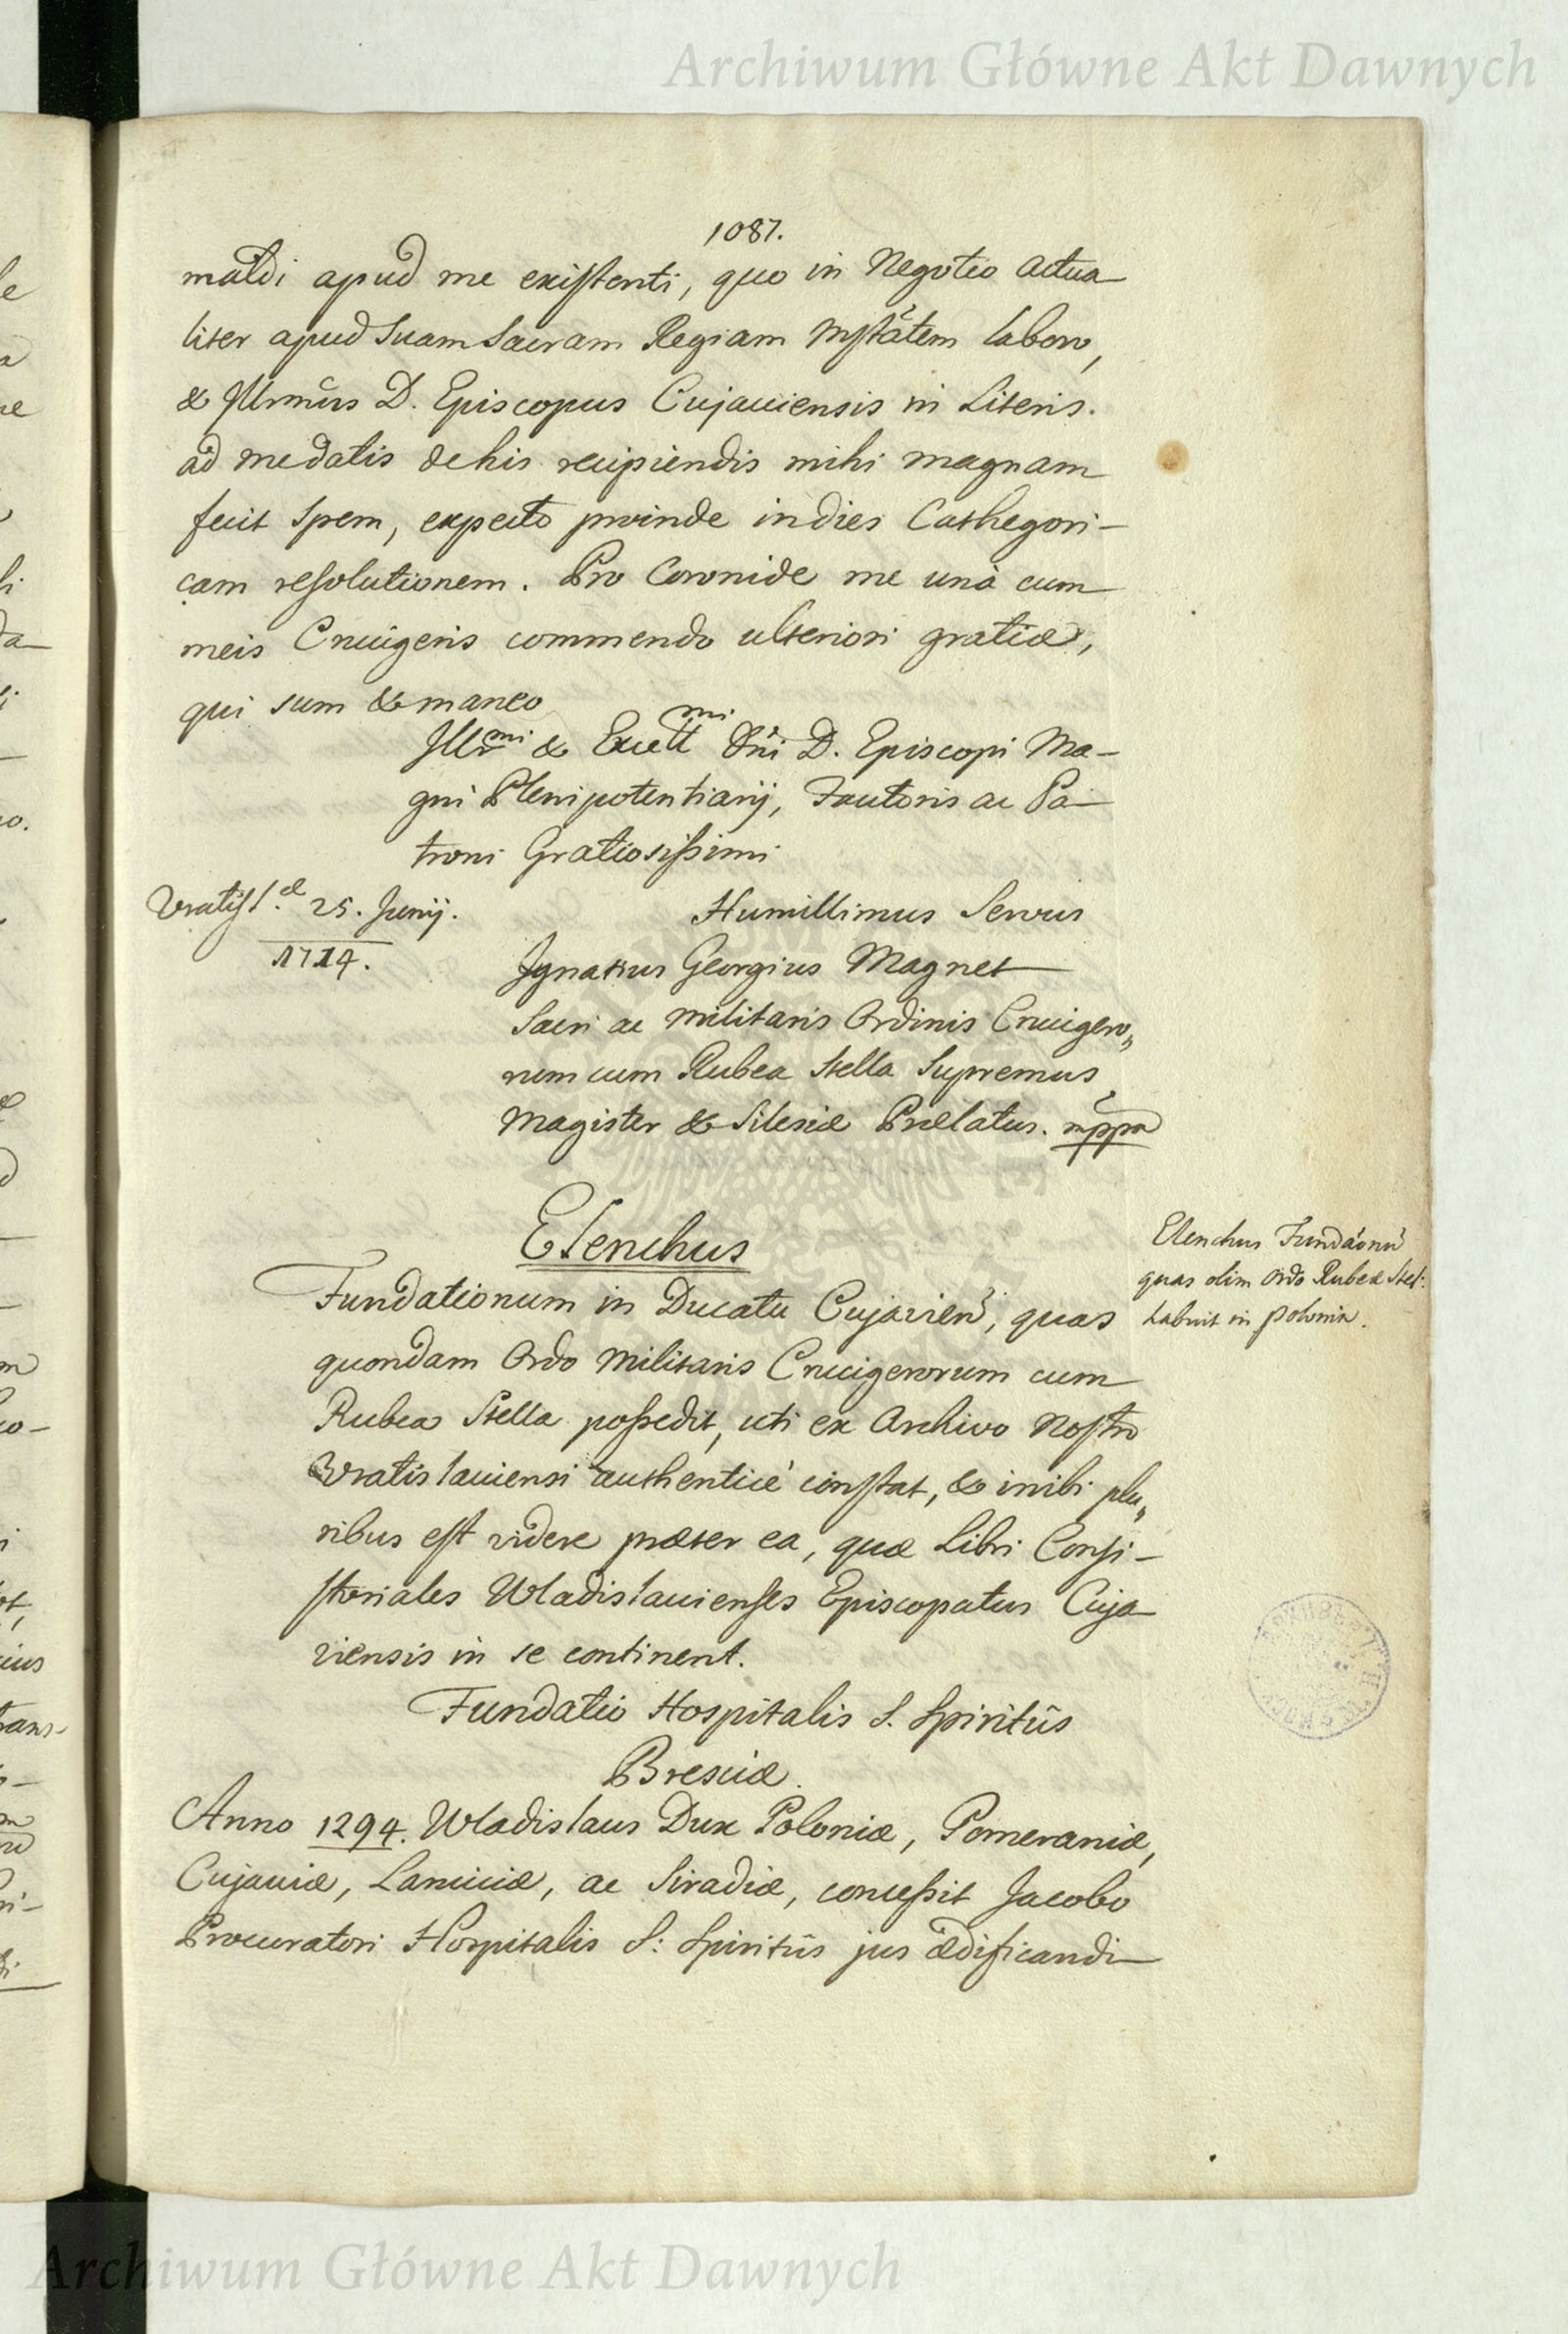 Archiwum Główne Akt Dawnych
1087.
maldi apud me existenti, quo in Negotio actua-
liter apud Suam Sacram Regiam Mstãtem laboro,
& Illrmũs D. Episcopus Cujaviensis in Literis.
ad me datis de his recipiendis mihi magnam
fecit Spem, expecto proinde in dies Cathegori-
cam resolutionem. Pro Coronide me unà cum
meis Crucigeris commendo ulteriori gratiæ,
qui sum & maneo
Illrmi & Excellmi Dñi D. Episcopi Ma-
gni Plenipotentiarij, Fautoris ac Pa-
troni Gratiosissimi
Vratisl. 25. Junij.
1714.
Humillimus Servus
Ignatius Georgius Magnet
Sacri ac Militaris Ordinis Crucigero„
rum cum Rubea Stella Supremus
Magister & Silesiæ Prælatus. mppa
Elenchus
Fundationum in Ducatu Cujavien̄, quas
quondam Ordo Militaris Crucigerorum cum
Rubea Stella possedit, uti ex Archivo Nostro
Wratislaviensi authenticè constat, & inibi plu„
ribus est videre præter ea, quæ Libri Consi-
storiales Wladislavienses Episcopatus Cuja-
viensis in se continent.
Elenchus Fundãonũ
quas olim Ordo Rubeæ Stel:
habuit in Polonia.
Fundatio Hospitalis S. Spiritûs
Bresciæ.
Anno 1294. Wladislaus Dux Poloniæ, Pomeraniæ,
Cujaviæ, Lanciciæ, ac Siradiæ, concessit Jacobo
Procuratori Hospitalis S: Spiritûs jus ædificandi
Archiwum Główne Akt Dawnych